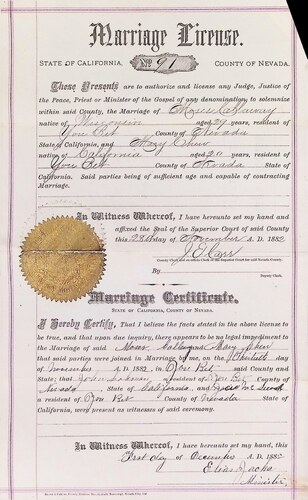 Marriage License.
STATE OF CALIFORNIA, No. 91 COUNTY OF NEVADA.
These Presents are to authorize and license any Judge, Justice of
the Peace, Priest or Minister of the Gospel of any denomination to solemnize
within said County, the Marriage of
native of Wisconsin aged 29 years, resident of
You Bet County of Nevada
State of California, and Mary
native of California aged 20 years, resident of
You Bet County of Nevada State of
California. Said parties being of sufficient age and capable of contracting
Marriage.
In Witness Whereof, I have hereunto set my hand and
affixed the Seal of the Superior Court of said County
this 28th day of November A. D. 1882
J E Carr
County Clerk and ex-officio Clerk of the Superior Court for said Nevada County.
By
Deputy Clerk.
Marriage Certificate.
STATE OF CALIFORNIA, COUNTY OF NEVADA.
I Hereby Certify, That I believe the facts stated in the above license to
be true, and that upon due inquiry, there appears to be no legal impediment to
the Marriage of said and Mary
that said parties were joined in Marriage by me, on the Thirtieth day
of November A. D. 1882, in You Bet said County and
State; that John a resident of You Bet County of
Nevada State of California, and
a resident of You Bet County of Nevada State of
California, were present as witnesses of said ceremony.
In Witness Whereof, I have hereunto set my hand, this
First day of December A. D. 1882
Elias Jacka
Minister